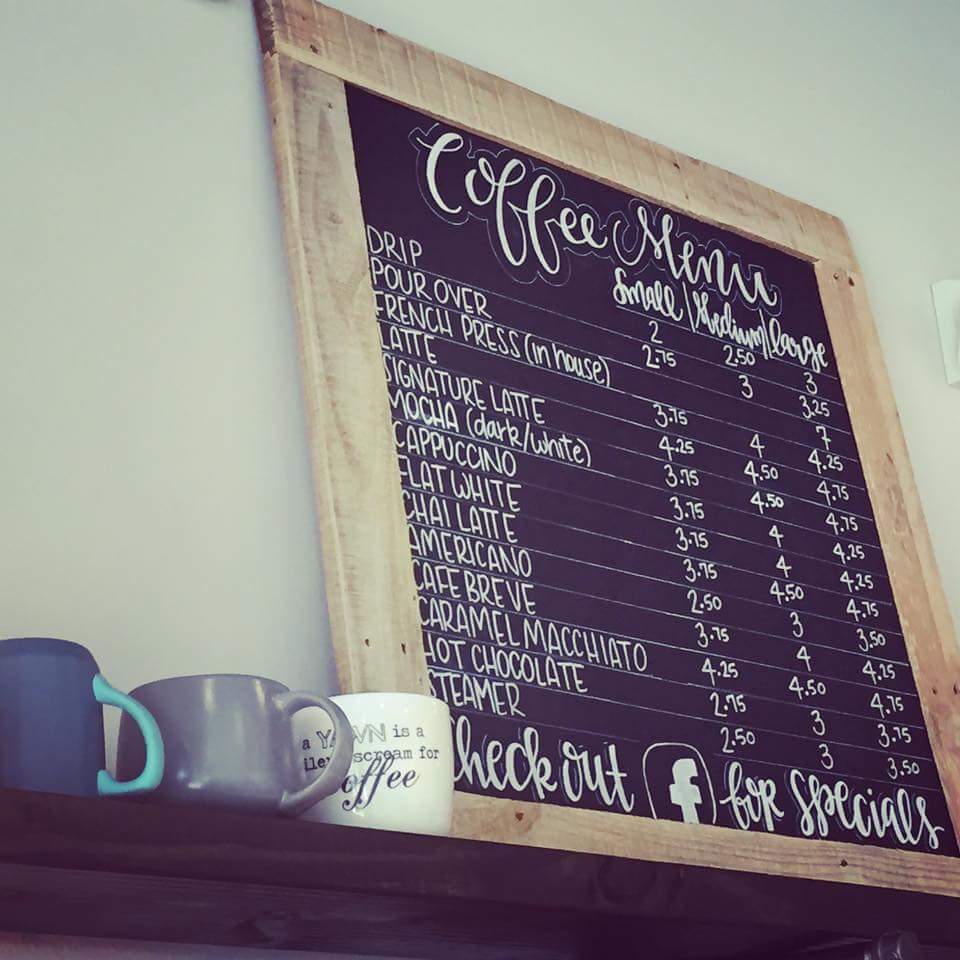 Coffee Menu
Small | Medium | large
DRIP 2 2.50 3
POUR OVER 2.75 3 3.25
FRENCH PRESS (in house) 7
LATTE 3.75 4 4.25
SIGNATURE LATTE 4.25 4.50 4.75
MOCHA (dark/white) 3.75 4.50 4.75
CAPPUCCINO 3.75 4 4.25
FLAT WHITE 3.75 4 4.25
CHAI LATTE 3.75 4.50 4.75
AMERICANO 2.50 3 3.50
CAFE BREVE 3.75 4 4.25
CARAMEL MACCHIATO 4.25 4.50 4.75
HOT CHOCOLATE 2.75 3 3.75
STEAMER 2.50 3 3.50
Check out f for specials
a YAWN is a
scream for
coffee